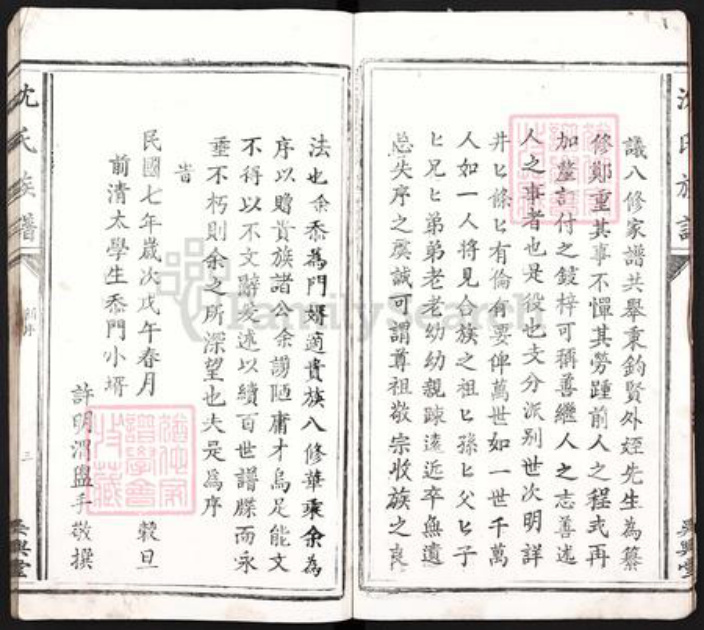 議八修家譜共舉秉鈞賢外姪先生為纂
修鄭重其事不憚其勞踵前人之程式再
加釐訂付之錢梓可稱善繼人之志善述
人之事者也是役也支分派别世次明詳
井匕條匕有倫有要俾萬世如一世千萬
人如一人將見合族之祖匕孫匕父匕子
匕兄匕弟弟老老幼幼親踈遠近卒無遺
忘失序之虞誠可謂尊祖敬宗收族之良
沈氏族譜
吳興堂
法也余忝為門婿適貴族八修華乘余為
序以贈貴族諸公余謭陋庸才烏足能文
不得以不文辭爰述以續百世譜牒而永
垂不朽則余之所深望也夫是為序
旹
民國七年歲次戊午春月 穀旦
前清太學生忝門小壻
許明渭盥手敬撰
沈氏族譜
三
吳興堂
FamilySearch